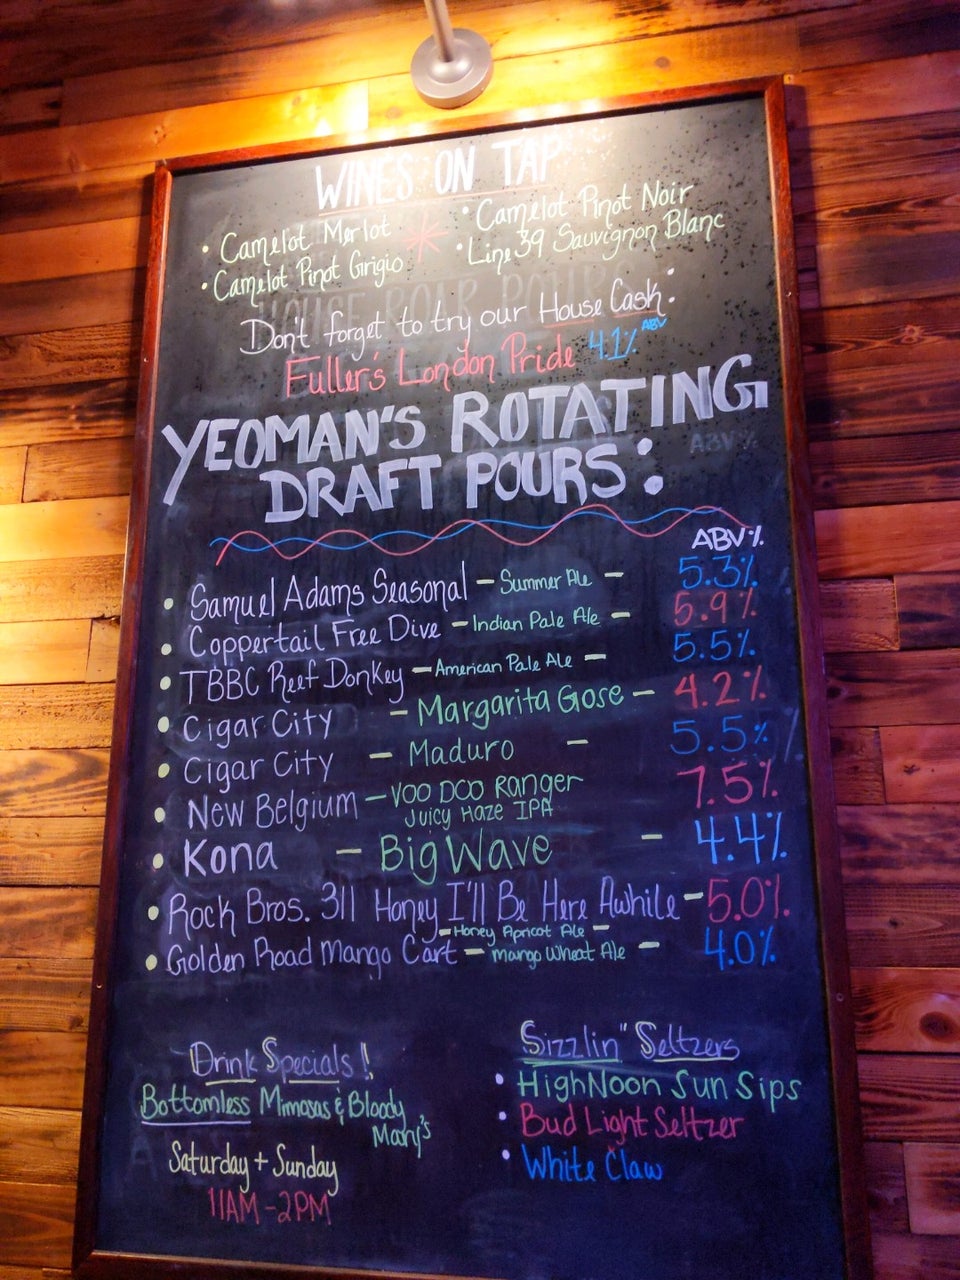 WINES ON TAP
• Camelot Merlot
• Camelot Pinot Grigio
• Camelot Pinot Noir
• Line 39 Sauvignon Blanc
Don't forget to try our House Cask:
Fuller's London Pride 4.1% ABV
YEOMAN'S ROTATING
DRAFT POURS:
ABV%
• Samuel Adams Seasonal - Summer Ale - 5.3%
• Coppertail Free Dive - Indian Pale Ale - 5.9%
• TBBC Reef Donkey - American Pale Ale - 5.5%
• Cigar City - Margarita Gose - 4.2%
• Cigar City - Maduro - 5.5%
• New Belgium - VOO DOO Ranger 7.5%
Juicy Haze IPA
• Kona - Big Wave - 4.4%
• Rock Bros. 311 Honey I'll Be Here Awhile - 5.0%
- Honey Apricot Ale -
• Golden Road Mango Cart - mango Wheat Ale - 4.0%
Drink Specials!
Bottomless Mimosas & Bloody
Mary's
Saturday + Sunday
11AM - 2PM
Sizzlin" Seltzers
• High Noon Sun Sips
• Bud Light Seltzer
• White Claw